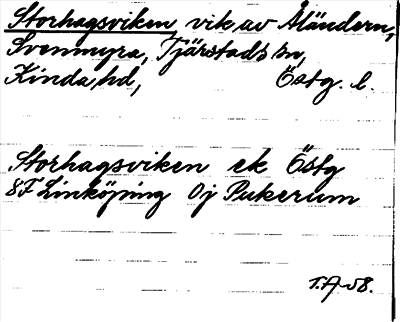 Storhagsviken vik av Åländern,
Svenmyra, Tjärstads sn,
Kinda hd, Östg. l.
Storhagsviken ek Östg
8F Linköping 0j Pukerum
T.A. 58.